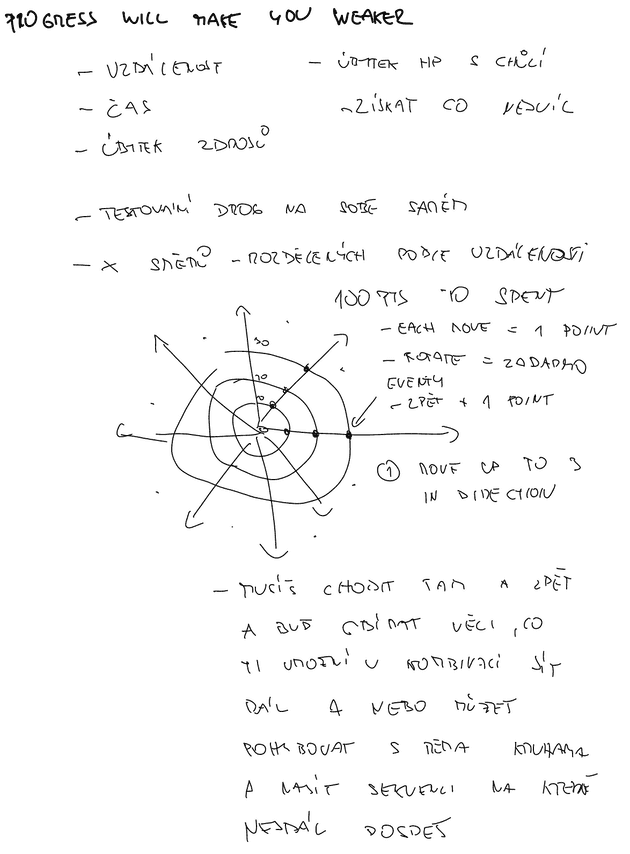 PROGRESS WILL MAKE YOU WEAKER
- VZDÁLENOST
- ČAS
- ÚBYTEK ZDROJŮ
- ÚBYTEK HP S CHŮZÍ
ZÍSKAT CO NEJVÍC
- TESTOVÁNÍ DROG NA SOBĚ SAMÉM
- X SMĚRŮ - ROZDĚLENÝCH PODLE VZDÁLENOSTI
100 PTS TO SPENT
- EACH MOVE = 1 POINT
- ROTATE = ZADARMO
EVENTY
- ZPĚT + 1 POINT
30
20
10
① MOVE UP TO 3
IN DIRECTION
- MUSÍŠ CHODIT TAM A ZPĚT
A BUĎ SBÍRAT VĚCI, CO
TI UMOŽNÍ V KOMBINACI JÍT
DÁL A NEBO MŮŽEŠ
POHYBOVAT S TĚMA KRUHAMA
A NAJÍT SEKVENCI NA KTERÉ
NEJDÁL DOJDEŠ